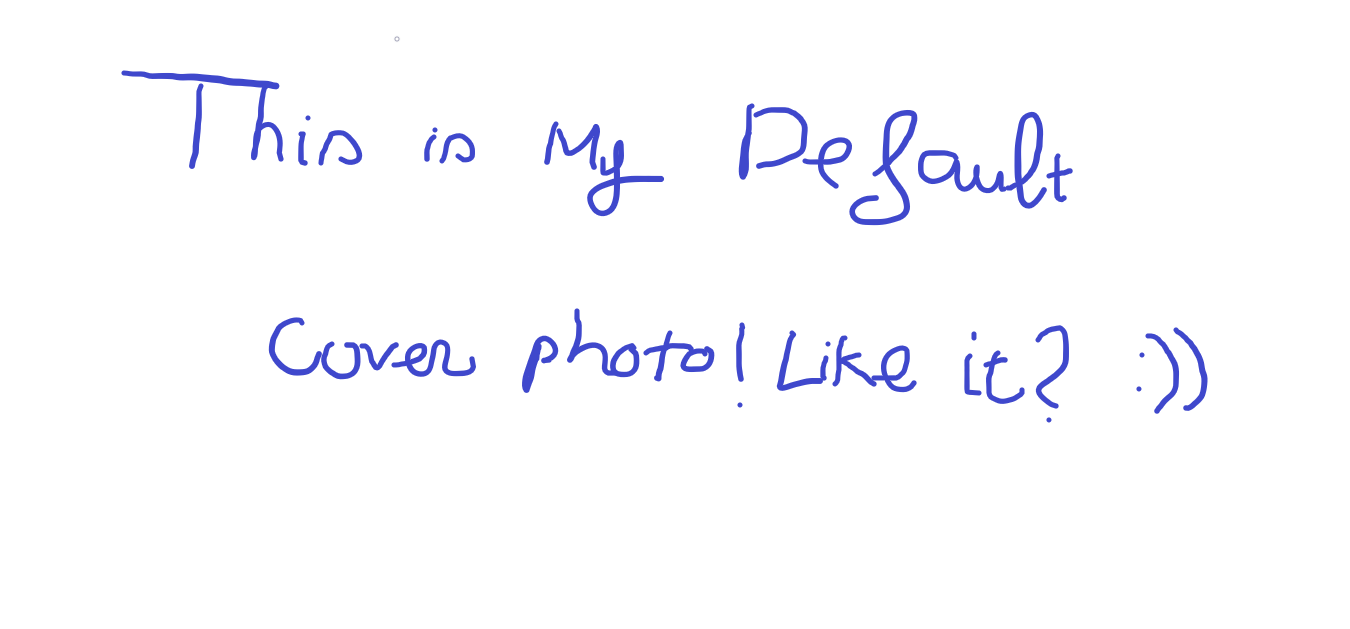 This is My Default
Cover photo! Like it? :))